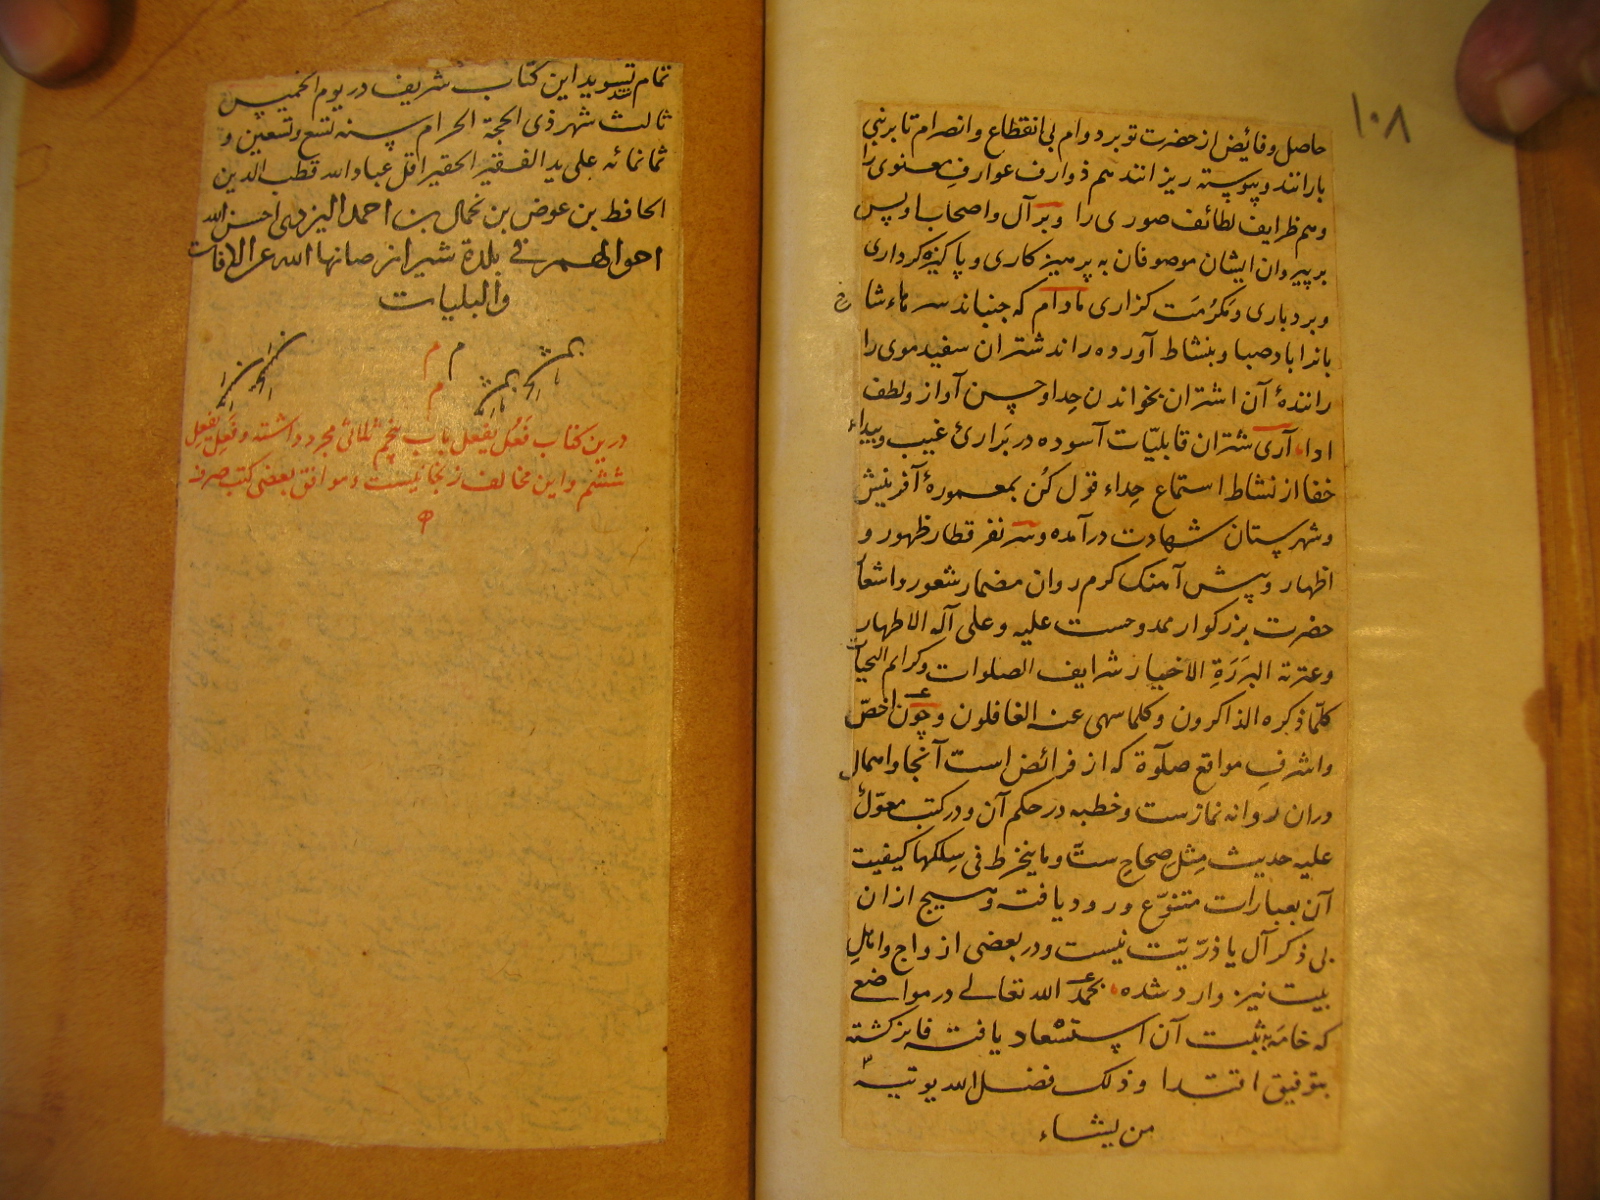 ۱۰۸
حاصل و فائیض از حضرت تو بر دوام بی انقطاع و انصرام تا بر نبی
بارانند و پیوسته ریزانند هم ذوارف عوارفِ معنوی را
و هم ظرایف لطائف صوری را و بر آل و اصحاب او پس
بر پیروان ایشان موصوفان به پرهیزکاری و پاکیزه کرداری
و بردباری و مَکرُمَت کزاری مادام که جنباند سرهاء شا
باندا باد صبا و بنشاط آورده راند شتران سفید موی را
رانندهٔ آن اشتران بخواندن حِدا و حسن آواز و لطف
ادا، آری شتران قابلیّات آسوده در بَراریٔ غیب و بیداء
خفا از نشاط استماع حِداء قول کُن بمعمورهٔ آفرینش
و شهرستان شهادت درآمده و سر نفر قطار ظهور و
اظهار و پیش آهنک کرم روان مضمار شعور و اشعا
حضرت بزرکوار ممدوحست علیه و علی آله الاطهار
و عترته البَرَرَةِ الاخیار شرایف الصلوات و کرائم التحیات
کلّما ذکره الذاکرون و کلما سهی عنه الغافلون و چون اخصّ
و اشرفِ مواقع صلوة که از فرائض است آنجا و اهمال
دران نه روا نه نمازست و خطبه در حکم آن و در کتب معوّلٌ
علیه حدیث مِثل صحاحِ ستّ و ما ینخرط فی سِلکها کیفیت
آن بعبارات متنوّع ورود یافته و هیچ ازان
بی ذکر آل یا ذرّیّت نیست و در بعضی ازواج و اهلِ
بیت نیز وارد شده، بحمد الله تعالی در مواضع
که خامه به ثبت آن استسعاد یافته فائز کشته
بتوفیق اقتدا و ذلک فضل الله یوتیه
من یشاء
تمام تسوید این کتاب شریف در یوم الخمیس
ثالث شهر ذی الحجة الحرام سنه تسع و تسعین و
ثمانمائه علی ید الفقیر الحقیر اقل عباد الله قطب الدین
الحافظ بن عوض بن نحمال بن احمد الیزدی احسن الله
احوالهم فی بلدة شیراز صانها الله عن الافات
والبلیات
م م
م
درین کتاب فَعُل یَفعل باب پنجم ثلاثی مجرد داشته و فَعِل یفعل
ششم و این مخالف زنجانیست و موافق بعضی کتب صرف